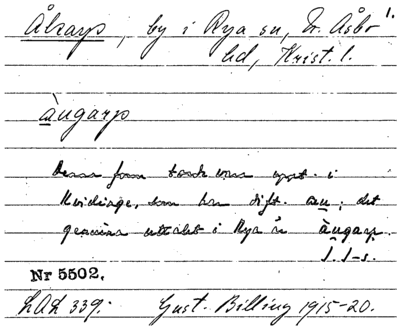 Åkarp, by i Rya sn, N. Åsbo 1.
hd, Krist. l.
àugarp
Denna form torde vara uppt. i
Hvidinge, som har dift. au; det
genuina uttalet i Rya är àugarp.
J. J-s.
Nr 5502.
LAL 339. Gust. Billing 1915-20.